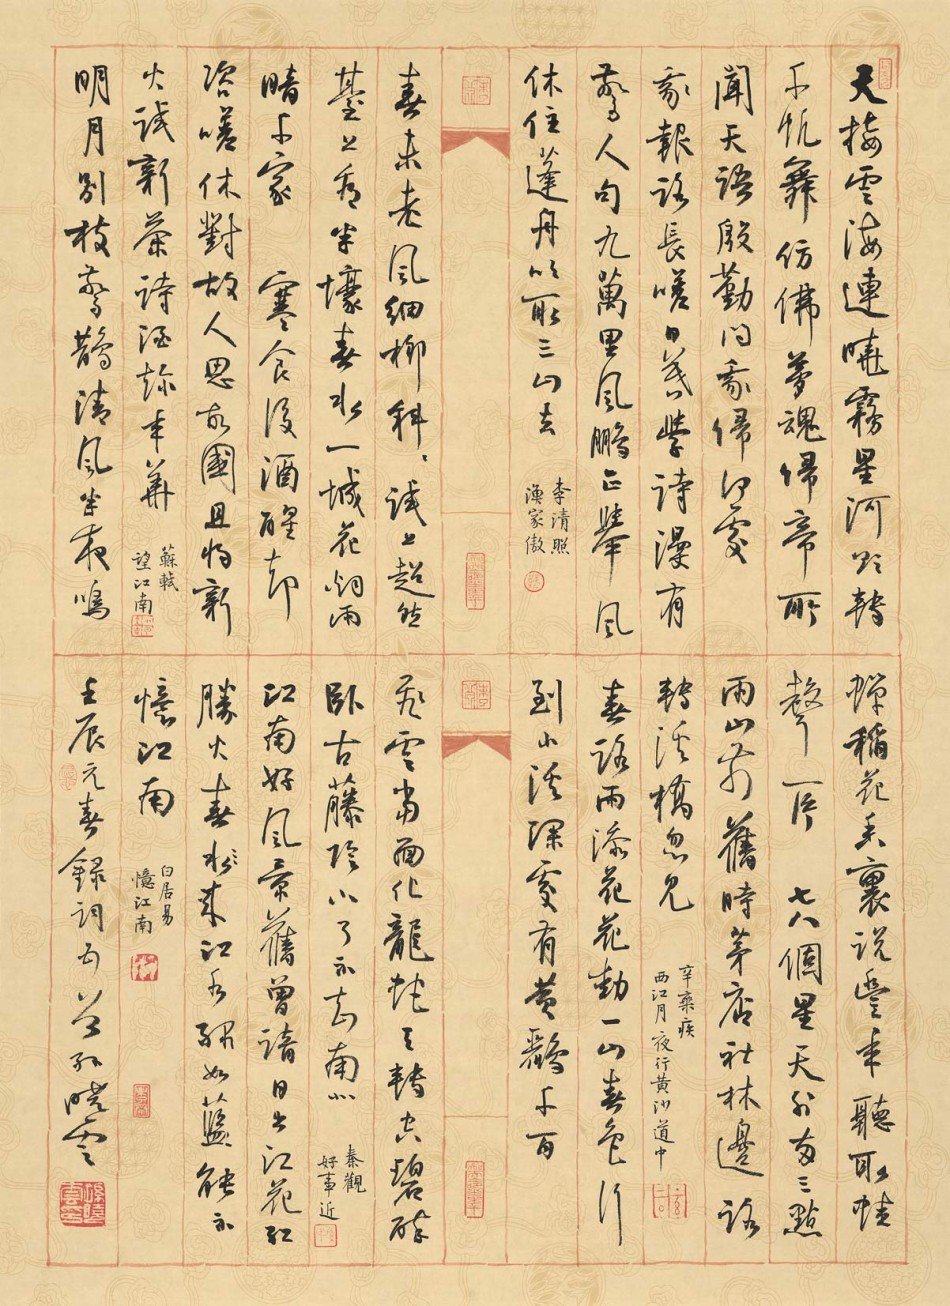 天接雲海連曉霧星河欲轉
千帆舞仿佛夢魂歸帝所
聞天語殷勤問我歸何處
我報路長嗟日暮學詩漫有
驚人句九萬里風鵬正舉風
休住蓬舟吹取三山去
李清照
漁家傲
春未老風細柳斜〻試上超然
臺上看半壕春水一城花烟雨
暗千家 寒食後酒醒卻
咨嗟休對故人思故國且將新
火試新茶詩酒趁年華
蘇軾
望江南
明月別枝驚鵲清風半夜鳴
蟬稻花香裏說豐年聽取蛙
聲一片 七八個星天外兩三點
雨山前舊時茅店社林邊路
轉溪橋忽見
辛棄疾
西江月夜行黃沙道中
春路雨添花花動一山春色行
到小溪深處有黃鸝千百
飛雲當面化龍蛇夭轉空碧醉
臥古藤陰下了不知南北
秦觀
好事近
江南好風景舊曾諳日出江花紅
勝火春水來江水綠如藍能不
憶江南
白居易
憶江南
壬辰元春錄詞五首孫曉雲
孫曉雲印